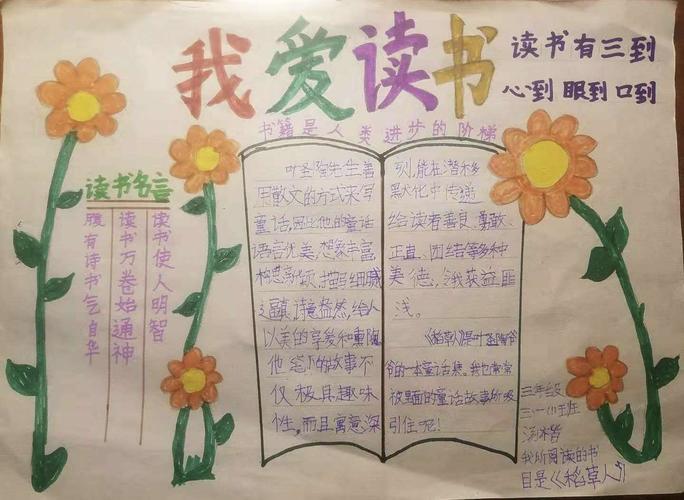 我爱读书
读书有三到
心到 眼到 口到
书籍是人类进步的阶梯
读书名言
读书使人明智
读书万卷始通神
腹有诗书气自华
叶圣陶先生善
用散文的方式来写
童话,因此他的童话
语言优美,想象丰富
构思新颖,描写细腻
逼真,诗意盎然,给人
以美的享爱和熏陶
他笔下的故事不
仅极具趣味
性,而且寓意深
刻,能在潜移
默化中传递
给读者善良、勇敢、
正直、团结等多种
美德,让我获益匪
浅。
《稻草人》是叶圣陶爷
爷的一本童话集。我也常常
被里面的童话故事所吸
引住呢!
三年级
班
我所阅读的书
目是《稻草人》